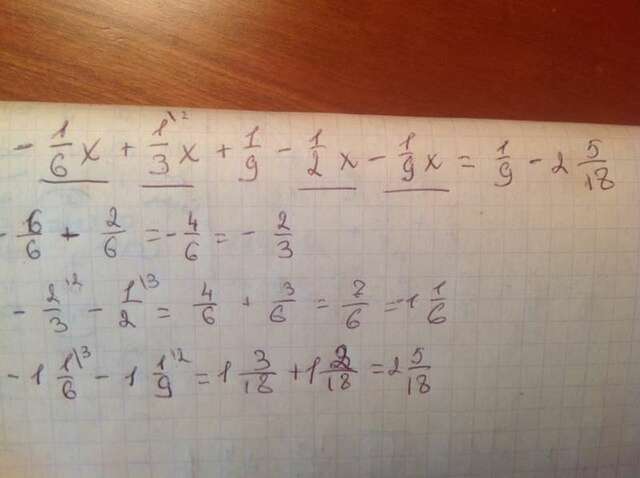 - 1/6 x + 1\2/3 x + 1/9 - 1/2 x - 1/9 x = 1/9 - 2 5/18
- 6/6 + 2/6 = - 4/6 = - 2/3
- 2\2/3 - 1\3/2 = 4/6 + 3/6 = 7/6 = -1 1/6
- 1 1\3/6 - 1 1\2/9 = 1 3/18 + 1 2/18 = 2 5/18